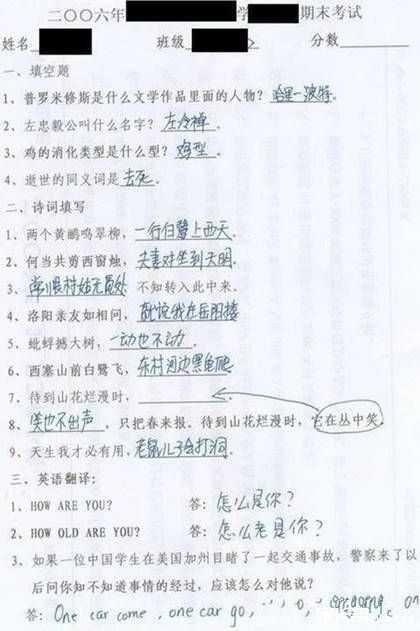 二〇〇六年 学 期末考试
姓名 班级 分数
一、填空题
1、普罗米修斯是什么文学作品里面的人物？哈里一波特。
2、左忠毅公叫什么名字？左冷禅。
3、鸡的消化类型是什么型？鸡型。
4、逝世的同义词是去死。
二、诗词填写
1、两个黄鹂鸣翠柳，一行白鹭上西天。
2、何当共剪西窗烛，夫妻对坐到天明。
3、常恨村姑无觅处 不知转入此中来。
4、洛阳亲友如相问，就说我在岳阳楼
5、蚍蜉撼大树，一动也不动。
6、西塞山前白鹭飞，东村河边黑龟爬
7、待到山花烂漫时，
8、笑也不出声，只把春来报。待到山花烂漫时，它在丛中笑。
9、天生我才必有用，老鼠儿子会打洞。
三、英语翻译：
1、HOW ARE YOU? 答：怎么是你？
2、HOW OLD ARE YOU? 答：怎么老是你？
3、如果一位中国学生在美国加州目睹了一起交通事故，警察来了以
后问你知不知道事情的经过，应该怎么对他说？
答：One car come, one car go,